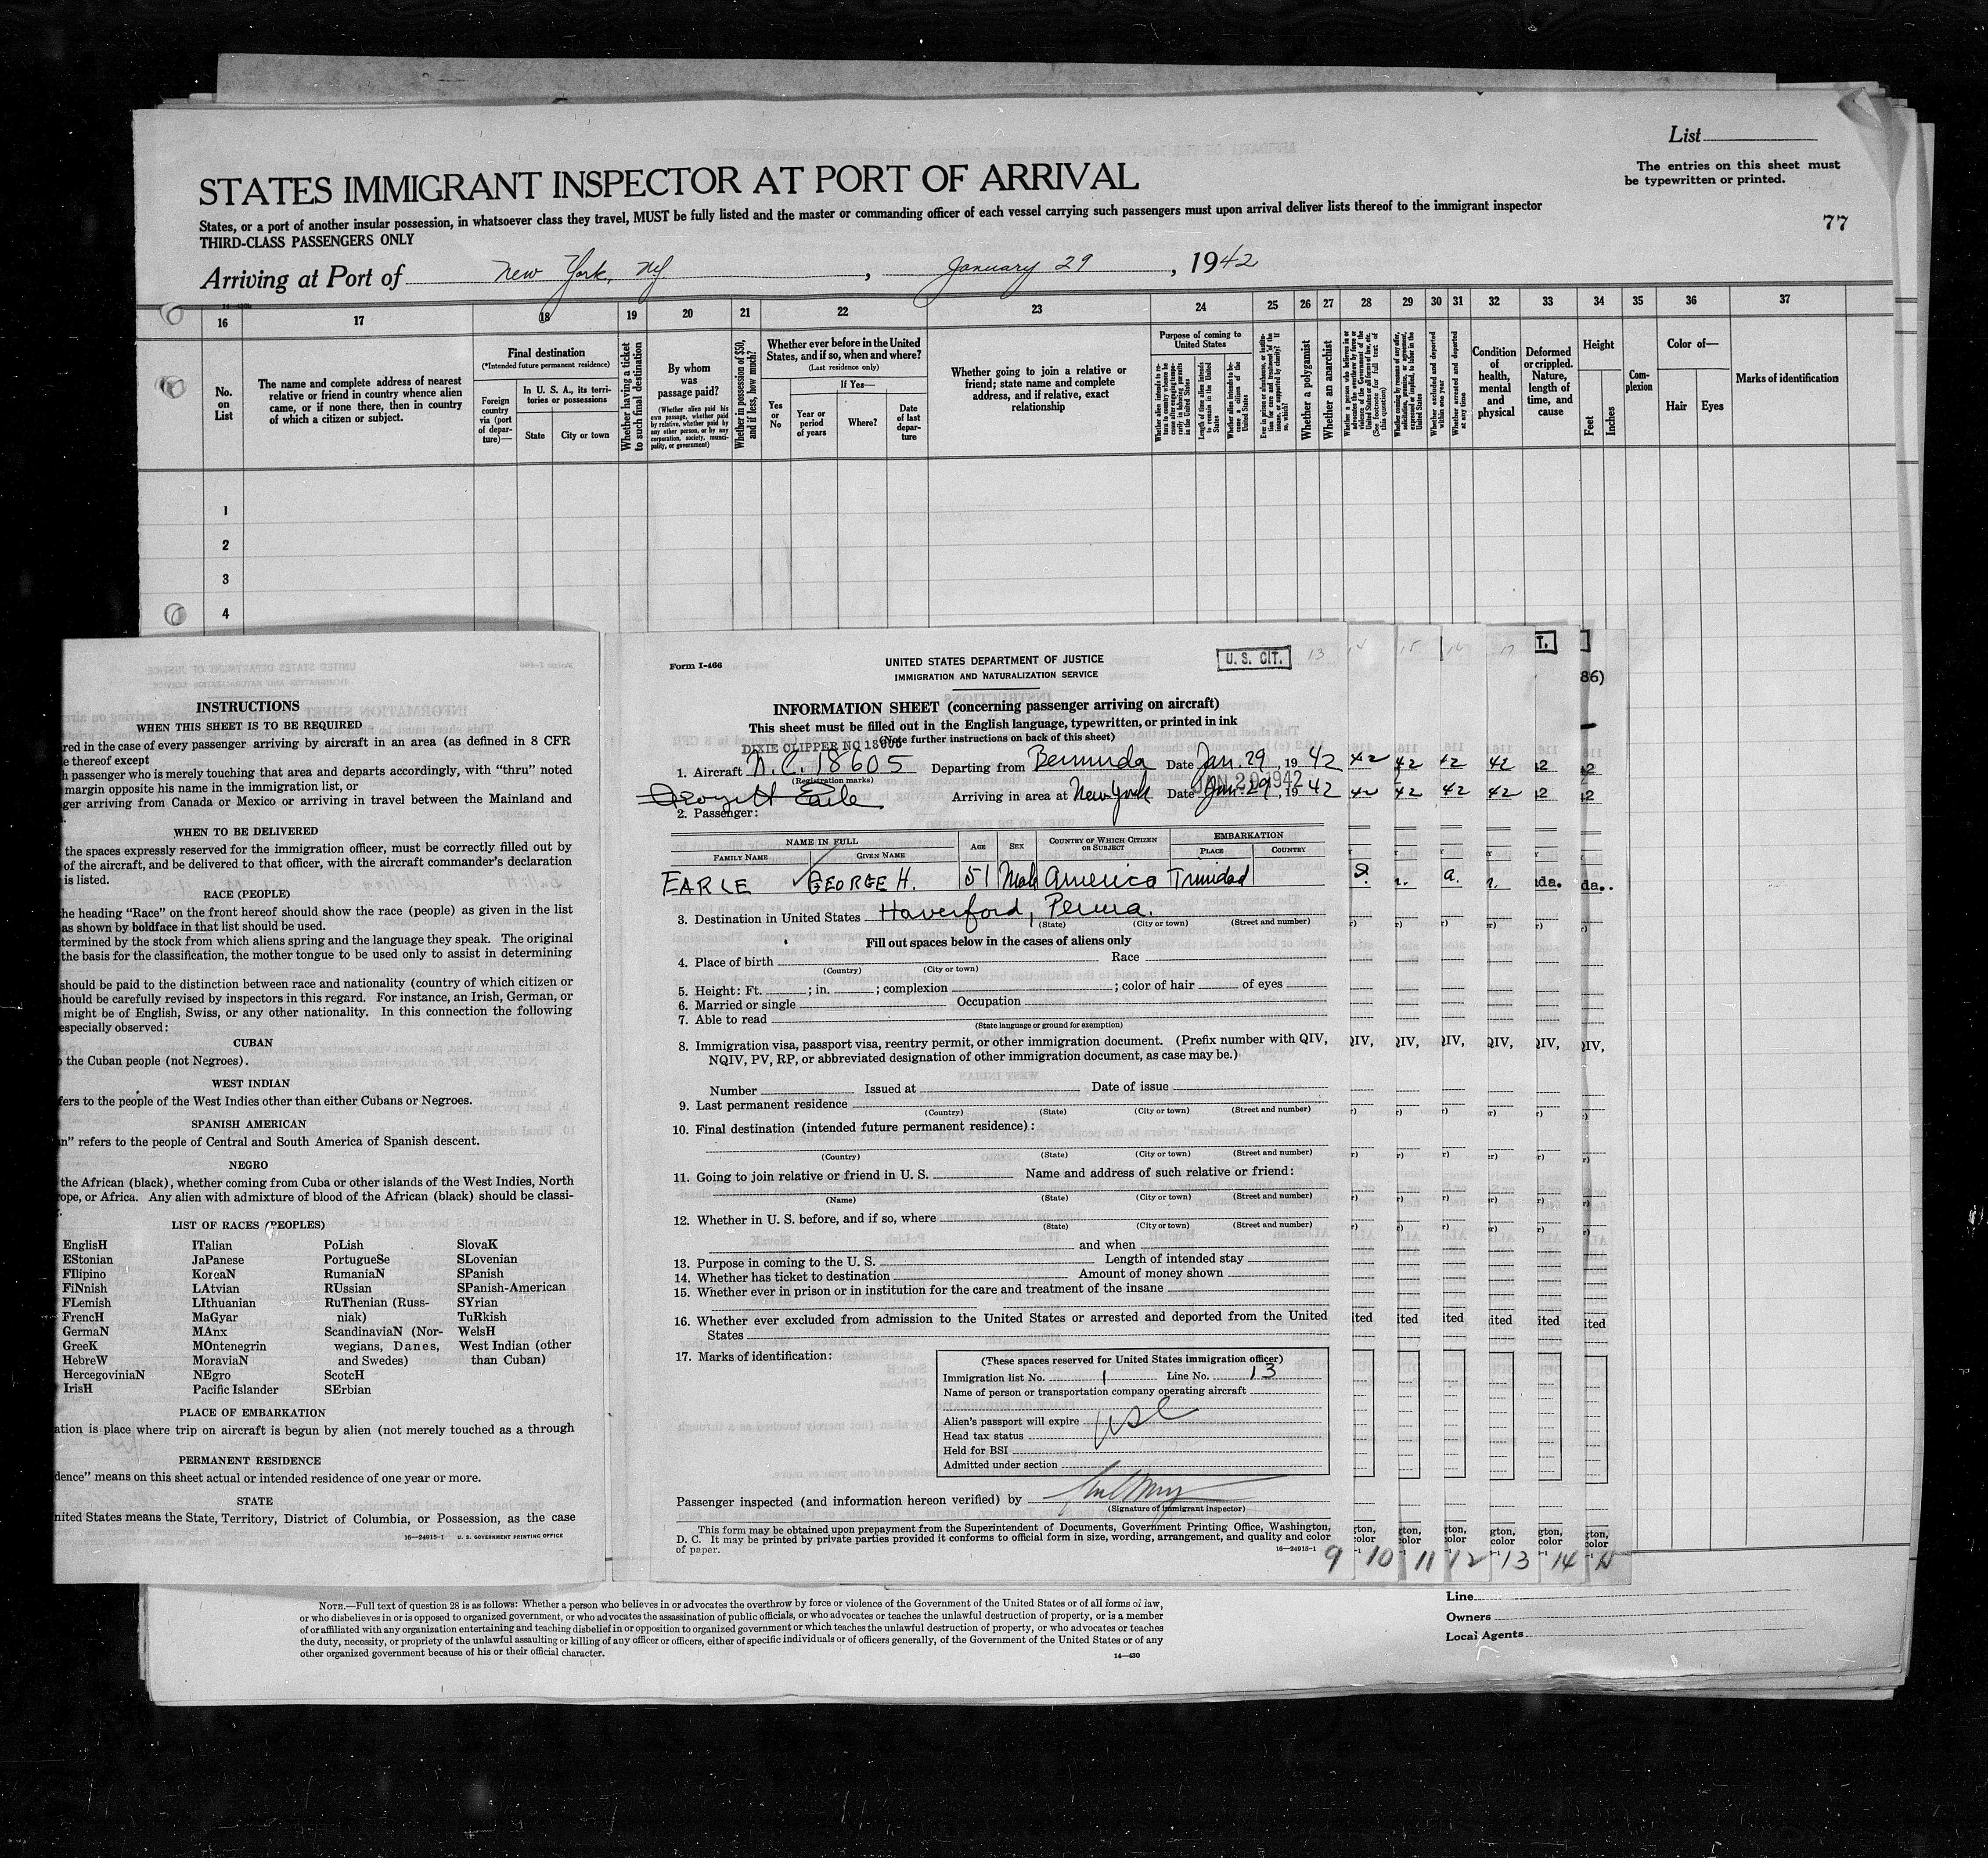 List
The entries on this sheet must
be typewritten or printed.
77
STATES IMMIGRANT INSPECTOR AT PORT OF ARRIVAL
States, or a port of another insular possession, in whatsoever class they travel, MUST be fully listed and the master or commanding officer of each vessel carrying such passengers must upon arrival deliver lists thereof to the immigrant inspector
THIRD-CLASS PASSENGERS ONLY
Arriving at Port of New York, NY, January 29, 1942
16 17 18 19 20 21 22 23 24 25 26 27 28 29 30 31 32 33 34 35 36 37
No. on List
The name and complete address of nearest relative or friend in country whence alien came, or if none there, then in country of which a citizen or subject.
Final destination
(*Intended future permanent residence)
Foreign country via (port of departure)—
In U. S. A., its territories or possessions
State
City or town
Whether having a ticket to such final destination
By whom was passage paid?
(Whether alien paid his own passage, whether paid by relative, whether paid by any other person, or by any corporation, society, municipality, or government)
Whether in possession of $50, and if less, how much?
Whether ever before in the United States, and if so, when and where?
(Last residence only)
Yes or No
If Yes—
Year or period of years
Where?
Date of last departure
Whether going to join a relative or friend; state name and complete address, and if relative, exact relationship
Purpose of coming to United States
Length of time alien intends to remain in the United States
Whether alien intends to become a citizen of the United States
Whether a polygamist
Whether an anarchist
Whether excluded and deported within one year
Whether arrested and deported at any time
Condition of health, mental and physical
Deformed or crippled. Nature, length of time, and cause
Height
Feet
Inches
Complexion
Color of—
Hair
Eyes
Marks of identification
1
2
3
4
INSTRUCTIONS
WHEN THIS SHEET IS TO BE REQUIRED
red in the case of every passenger arriving by aircraft in an area (as defined in 8 CFR
e thereof except
h passenger who is merely touching that area and departs accordingly, with "thru" noted
margin opposite his name in the immigration list, or
ger arriving from Canada or Mexico or arriving in travel between the Mainland and
WHEN TO BE DELIVERED
the spaces expressly reserved for the immigration officer, must be correctly filled out by
of the aircraft, and be delivered to that officer, with the aircraft commander's declaration
is listed.
RACE (PEOPLE)
he heading "Race" on the front hereof should show the race (people) as given in the list
as shown by boldface in that list should be used.
termined by the stock from which aliens spring and the language they speak. The original
the basis for the classification, the mother tongue to be used only to assist in determining
should be paid to the distinction between race and nationality (country of which citizen or
hould be carefully revised by inspectors in this regard. For instance, an Irish, German, or
might be of English, Swiss, or any other nationality. In this connection the following
especially observed:
CUBAN
o the Cuban people (not Negroes).
WEST INDIAN
fers to the people of the West Indies other than either Cubans or Negroes.
SPANISH AMERICAN
n" refers to the people of Central and South America of Spanish descent.
NEGRO
the African (black), whether coming from Cuba or other islands of the West Indies, North
rope, or Africa. Any alien with admixture of blood of the African (black) should be classi-
LIST OF RACES (PEOPLES)
EnglisH ITalian PoLish SlovaK
EStonian JaPanese PortugueSe SLovenian
FIlipino KoreaN RumaniaN SPanish
FiNnish LAtvian RUssian SPanish-American
FLemish LIthuanian RuThenian (Russ- SYrian
FrencH MaGyar niak) TuRkish
GermaN MAnx ScandinaviaN (Nor- WelsH
GreeK MOntenegrin wegians, Danes, West Indian (other
HebreW MoraviaN and Swedes) than Cuban)
HercegoviniaN NEgro ScotcH
IrisH Pacific Islander SErbian
PLACE OF EMBARKATION
ation is place where trip on aircraft is begun by alien (not merely touched as a through
PERMANENT RESIDENCE
dence" means on this sheet actual or intended residence of one year or more.
STATE
nited States means the State, Territory, District of Columbia, or Possession, as the case
16—24915-1 U. S. GOVERNMENT PRINTING OFFICE
Form I-466
UNITED STATES DEPARTMENT OF JUSTICE
IMMIGRATION AND NATURALIZATION SERVICE
U. S. CIT.
13 14 15 16 17
INFORMATION SHEET (concerning passenger arriving on aircraft)
This sheet must be filled out in the English language, typewritten, or printed in ink
(Note further instructions on back of this sheet)
DIXIE CLIPPER NO 18605
1. Aircraft N.C. 18605 Departing from Bermuda Date Jan. 29, 1942
(Registration marks)
George H Earle Arriving in area at New York Date Jan. 29, 1942
2. Passenger:
NAME IN FULL AGE SEX COUNTRY OF WHICH CITIZEN OR SUBJECT EMBARKATION
FAMILY NAME GIVEN NAME PLACE COUNTRY
EARLE GEORGE H. 51 Male America Trinidad
3. Destination in United States Haverford, Penna.
(State) (City or town) (Street and number)
Fill out spaces below in the cases of aliens only
4. Place of birth Race
(Country) (City or town)
5. Height: Ft. ; in. ; complexion ; color of hair of eyes
6. Married or single Occupation
7. Able to read
(State language or ground for exemption)
8. Immigration visa, passport visa, reentry permit, or other immigration document. (Prefix number with QIV,
NQIV, PV, RP, or abbreviated designation of other immigration document, as case may be.)
Number Issued at Date of issue
9. Last permanent residence
(Country) (State) (City or town) (Street and number)
10. Final destination (intended future permanent residence):
(Country) (State) (City or town) (Street and number)
11. Going to join relative or friend in U. S. Name and address of such relative or friend:
(Name) (State) (City or town) (Street and number)
12. Whether in U. S. before, and if so, where
(State) (City or town) (Street and number)
and when
13. Purpose in coming to the U. S. Length of intended stay
14. Whether has ticket to destination Amount of money shown
15. Whether ever in prison or in institution for the care and treatment of the insane
16. Whether ever excluded from admission to the United States or arrested and deported from the United
States
17. Marks of identification:
(These spaces reserved for United States immigration officer)
Immigration list No. 1 Line No. 13
Name of person or transportation company operating aircraft
Alien's passport will expire
Head tax status
Held for BSI
Admitted under section
Passenger inspected (and information hereon verified) by
(Signature of immigrant inspector)
This form may be obtained upon prepayment from the Superintendent of Documents, Government Printing Office, Washington,
D. C. It may be printed by private parties provided it conforms to official form in size, wording, arrangement, and quality and color
of paper. 16—24915-1
9 10 11 12 13 14
NOTE.—Full text of question 28 is as follows: Whether a person who believes in or advocates the overthrow by force or violence of the Government of the United States or of all forms of law,
or who disbelieves in or is opposed to organized government, or who advocates the assassination of public officials, or who advocates or teaches the unlawful destruction of property, or is a member
of or affiliated with any organization entertaining and teaching disbelief in or opposition to organized government or which teaches the unlawful destruction of property, or who advocates or teaches
the duty, necessity, or propriety of the unlawful assaulting or killing of any officer or officers, either of specific individuals or of officers generally, of the Government of the United States or of any
other organized government because of his or their official character.
14—430
Line
Owners
Local Agents